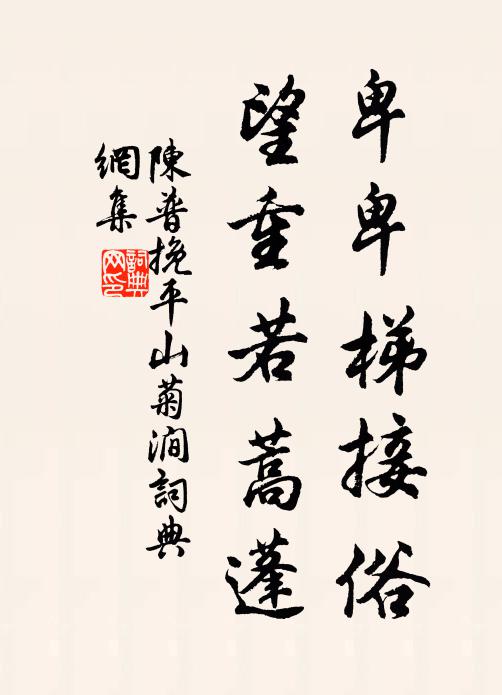 卑卑梯接俗
望重若蒿蓬
陳普挽平山菊澗詞典
網集
詞典網印